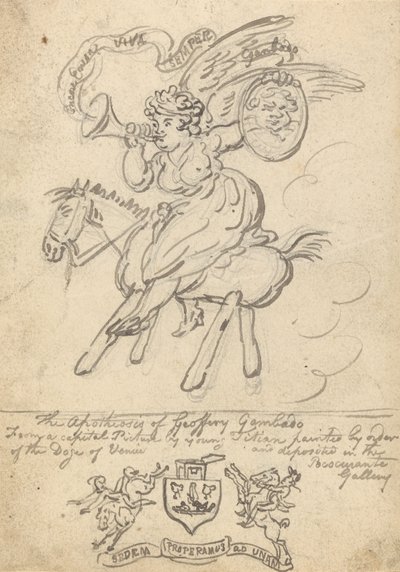 VIVA
SEMPER
Gambado
The Apotheosis of Geoffery Gambado
From a capital Picture by young Titian painted by order
of the Doge of Venice and deposited in the
Pococurante
Gallery
SEDEM PROPERAMUS AD UNAM